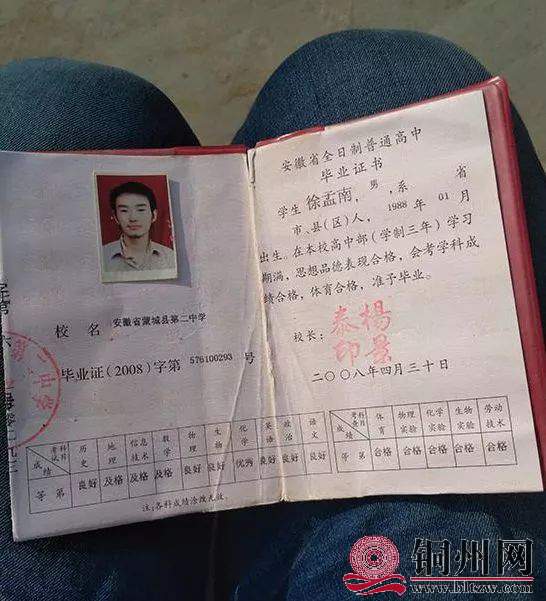 校 名 安徽省蒙城县第二中学
毕业证(2008)字第 576100293 号
考试科目 历史 地理 信息技术 数学 物理 生物 化学 英语 政治 语文
成绩
等第 良好 及格 及格 及格 良好 良好 优秀 良好 良好 良好
注:各科成绩涂改无效。
安徽省全日制普通高中
毕业证书
学生 徐孟南,男,系 省
市、县(区)人, 1988 年 01 月
出生。在本校高中部(学制三年)学习
期满,思想品德表现合格,会考学科成
绩合格,体育合格,准予毕业。
校长: 杨景泰印
二〇〇八年四月三十日
考查科目 体育 物理实验 化学实验 生物实验 劳动技术
成绩 合格 合格 合格 合格 合格
铜州网
www.bltzw.com